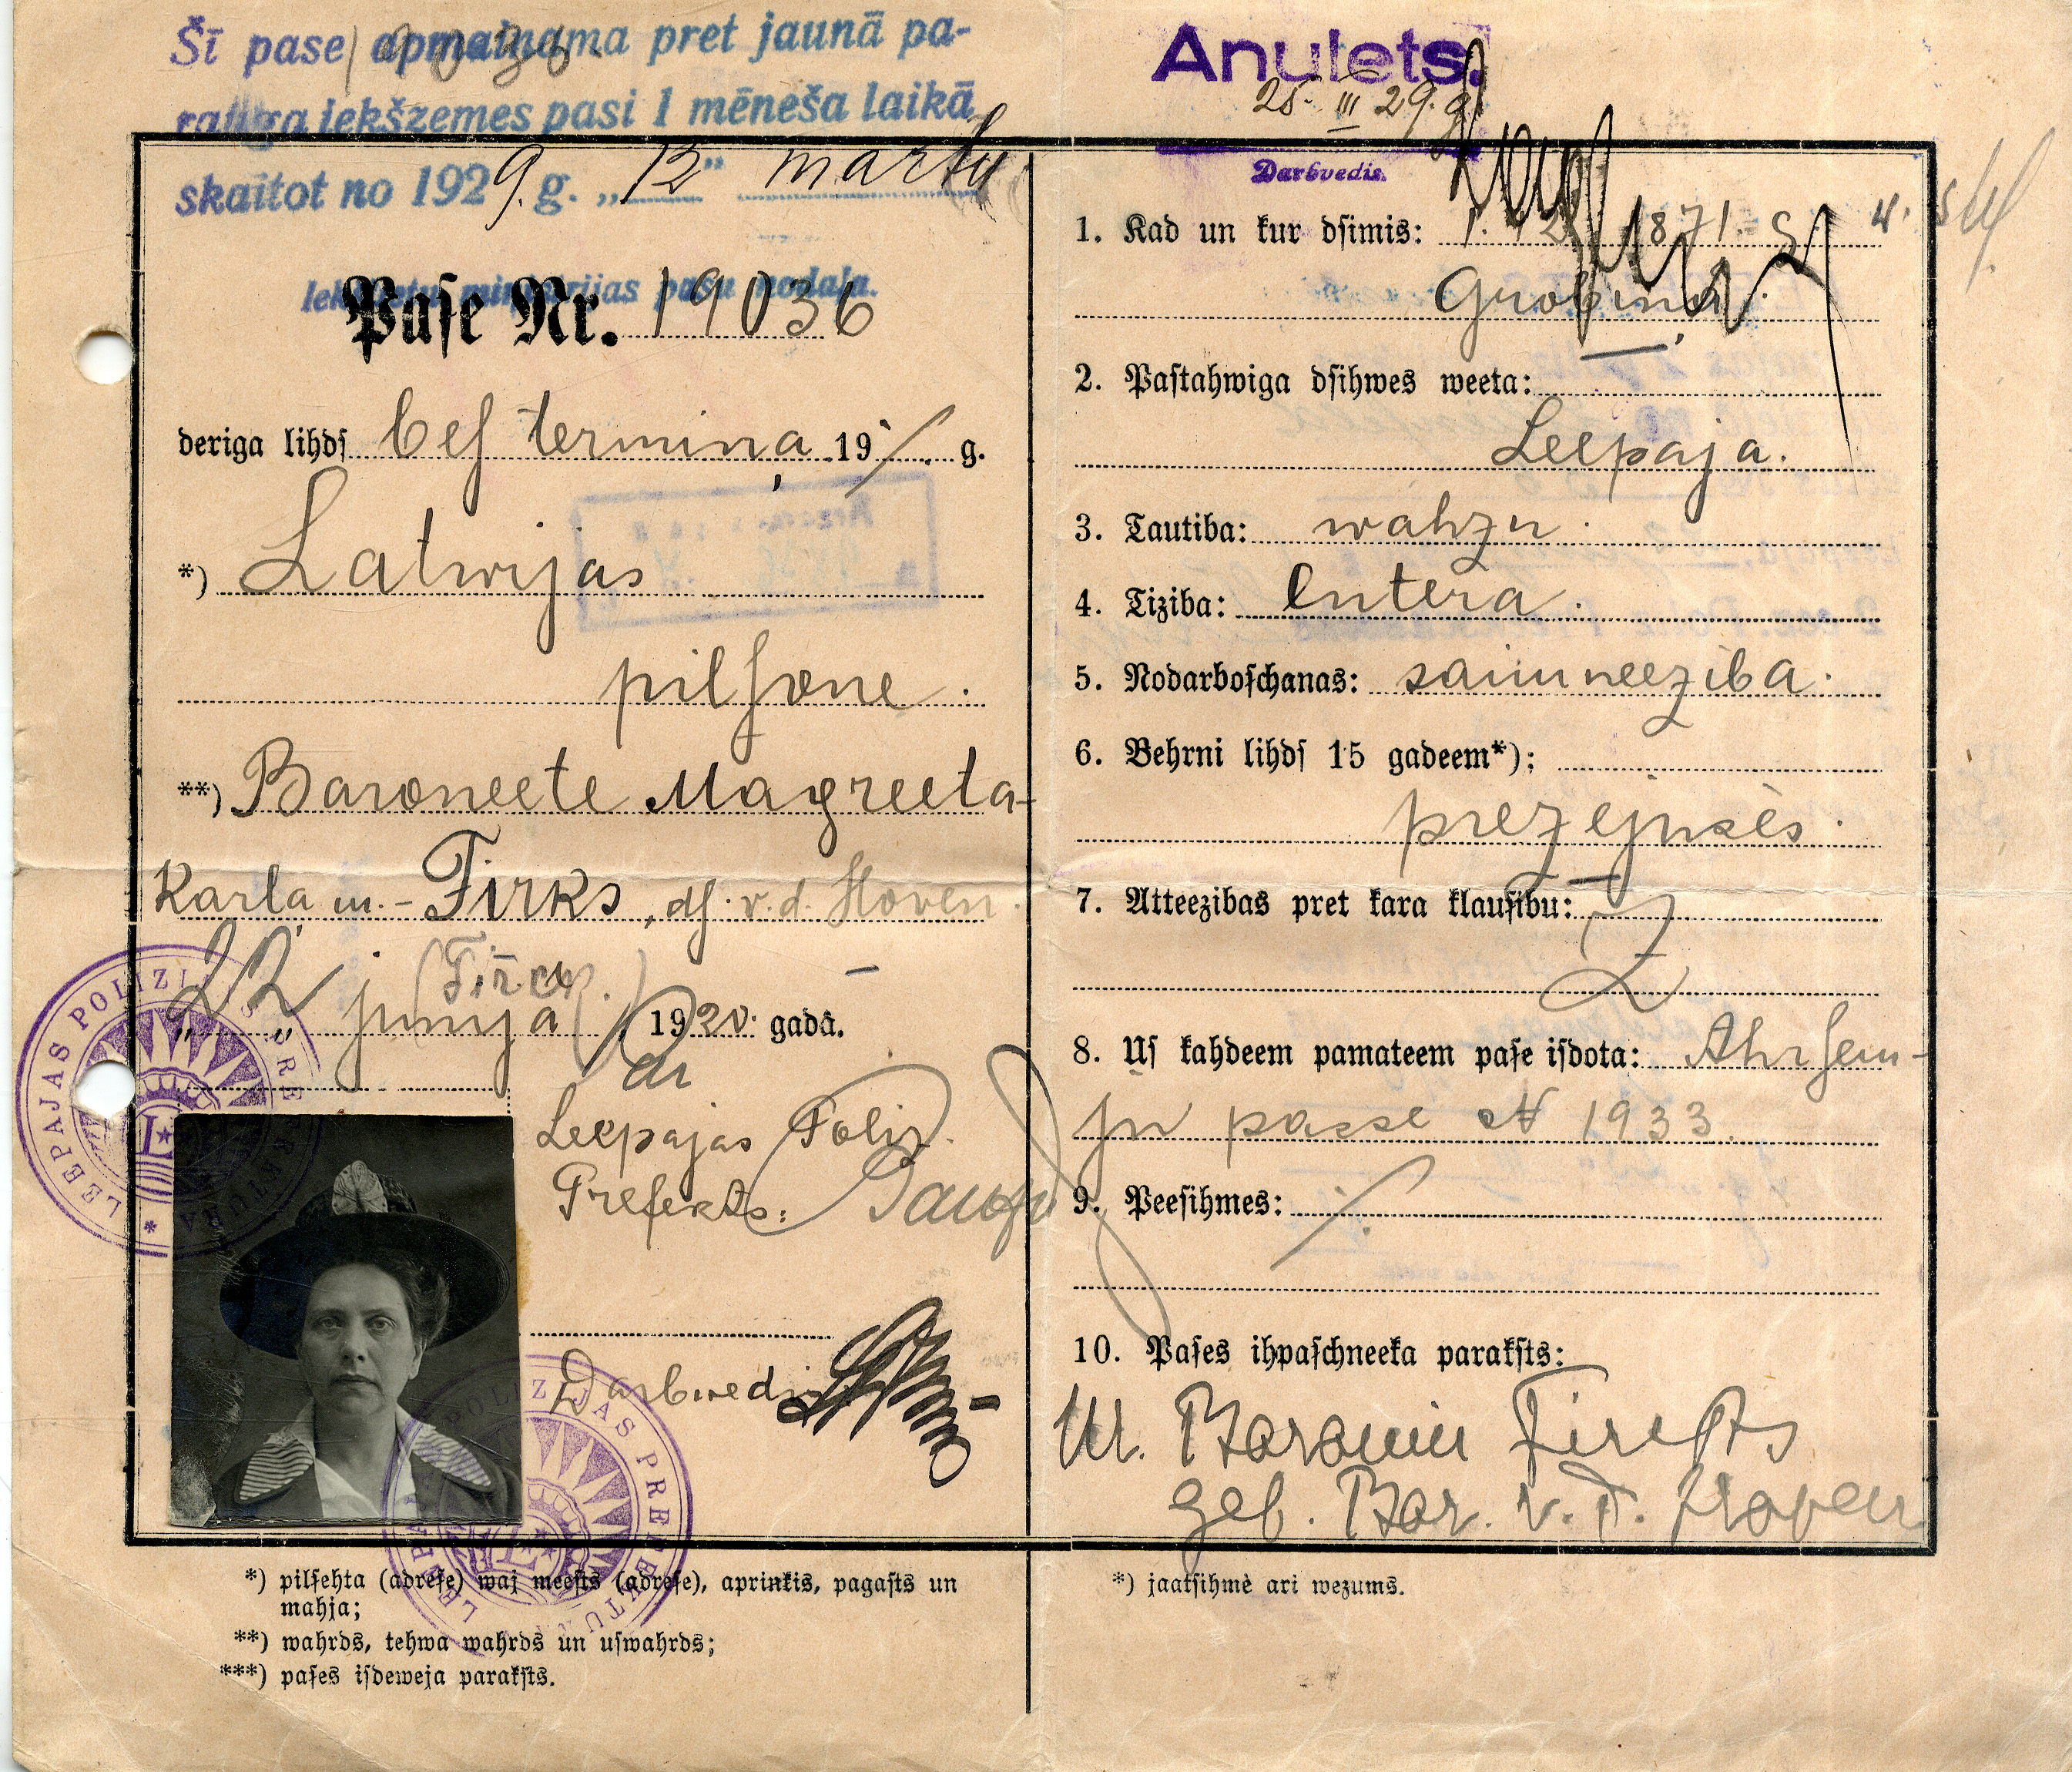 Šī pase apmaiņama pret jaunā pa-
rauga iekšzemes pasi 1 mēneša laikā
skaitot no 1929. g. „12” martu
Iekšlietu ministrijas pasu nodaļa.
Paſe Nr. 19036
deriga lihdſ beſ termiņa 19 g.
*) Latwijas
pilſone.
**) Baroneete Magreeta-
Karla m.- Firks, dſ. v. d. Hoven.
(Firck.)
„22” junija 1920. gadâ.
Leepajas Poliz.
Prefekts:
Darbwedis
LEEPAJAS POLIZIJAS PREFEKTURA
LEEPAJAS POLIZIJAS PREFEKTURA
*) pilſehta (adreſe) waj meeſts (adreſe), aprinkis, pagaſts un
mahja;
**) wahrds, tehwa wahrds un uſwahrds;
***) paſes iſdeweja parakſts.
Anulets.
25. III 29. g.
Darbvedis.
1. Kad un kur dſimis: 1871. g.
Grobiņā.
2. Paſtahwiga dſihwes weeta:
Leepaja.
3. Tautiba: wahzu.
4. Tiziba: lutera.
5. Nodarboſchanas: saimneeziba.
6. Behrni lihdſ 15 gadeem*):
prezejusès.
7. Atteezibas pret kara klauſibu:
8. Uſ kahdeem pamateem paſe iſdota: Ahrſem-
ju passe № 1933.
9. Peeſihmes:
10. Paſes ihpaſchneeka parakſts:
M. Baronin Fircks
geb. Bar. v. d. Hoven
*) jaatſihmē ari wezums.